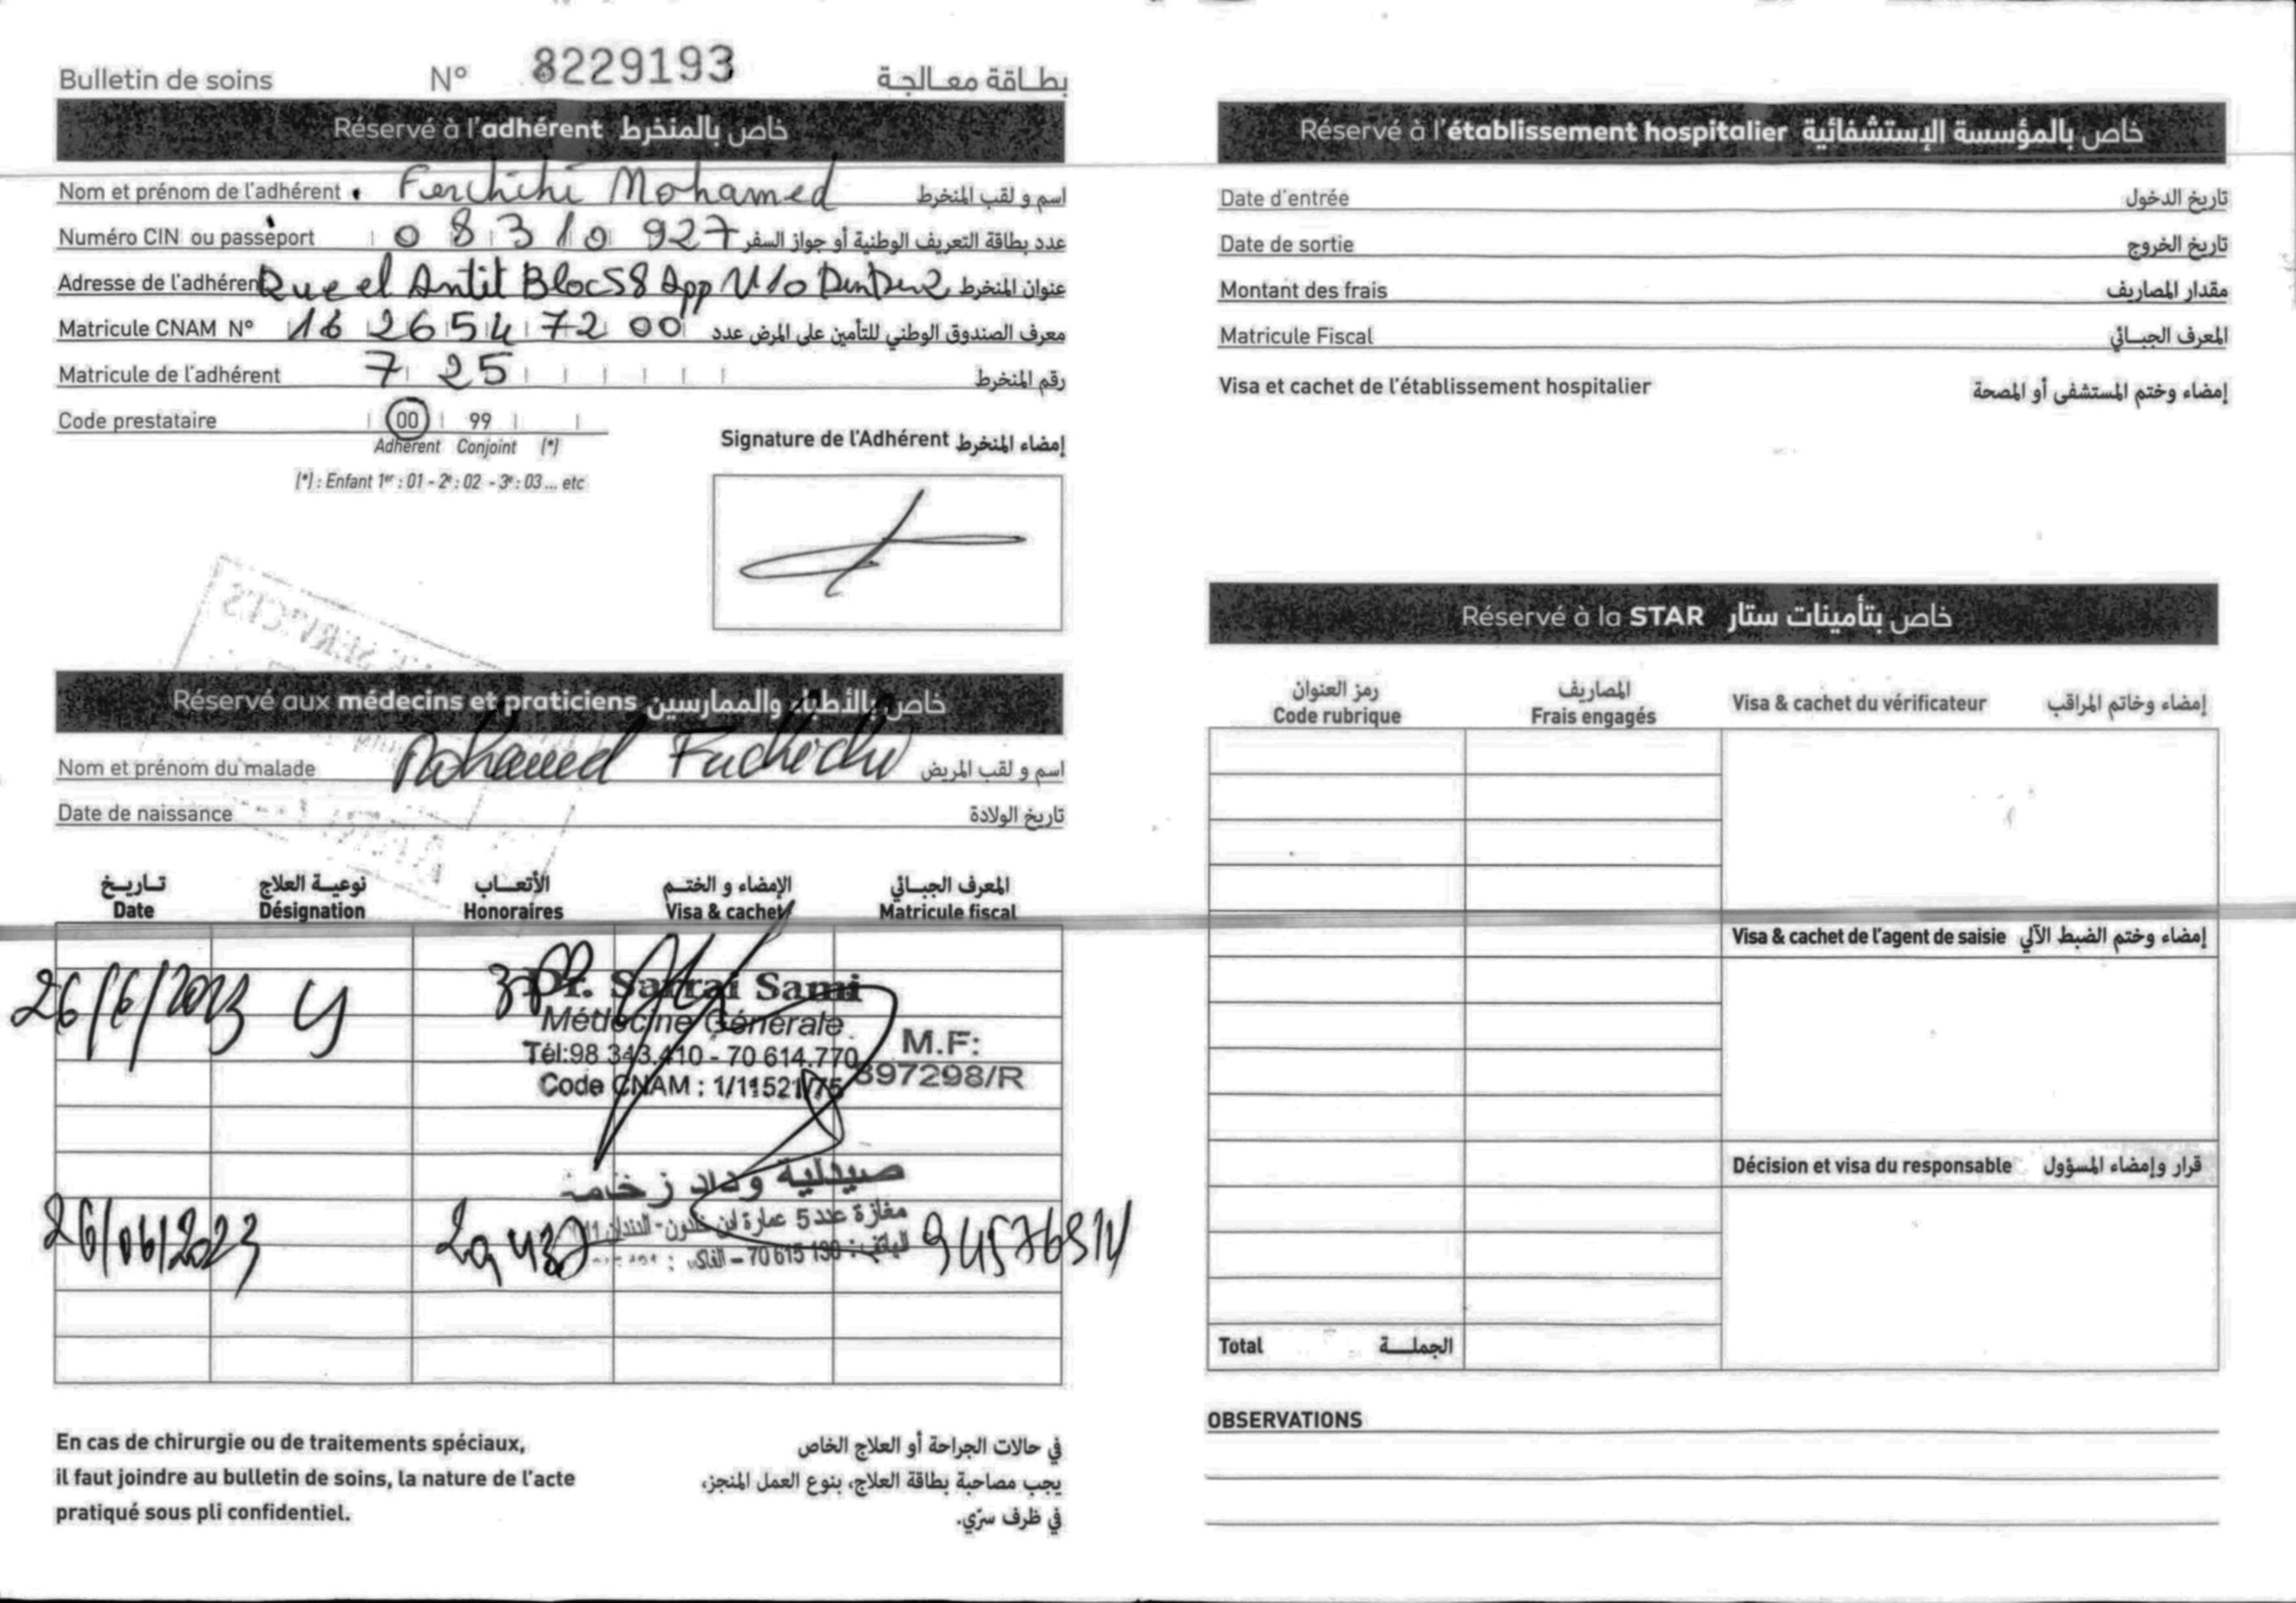 Bulletin de soins N° 8229193 بطاقة معالجة
Réservé à l'adhérent خاص بالمنخرط
Nom et prénom de l'adhérent Ferchichi Mohamed اسم و لقب المنخرط
Numéro CIN ou passeport 08310927 عدد بطاقة التعريف الوطنية أو جواز السفر
Adresse de l'adhérent Rue el Antit Bloc58 App N10 DenDen2 عنوان المنخرط
Matricule CNAM N° 16 26547200 معرف الصندوق الوطني للتأمين على المرض عدد
Matricule de l'adhérent 725 رقم المنخرط
Code prestataire 00 99
Adhérent Conjoint (*)
(*) : Enfant 1er : 01 - 2e : 02 - 3e : 03 ... etc
Signature de l'Adhérent إمضاء المنخرط
Réservé aux médecins et praticiens خاص بالأطباء والممارسين
Nom et prénom du malade Mohamed Ferchichi اسم و لقب المريض
Date de naissance تاريخ الولادة
تاريخ نوعية العلاج الأتعاب الإمضاء و الختم المعرف الجبائي
Date Désignation Honoraires Visa & cachet Matricule fiscal
26/6/2023
Dr. Sarrai Sami
Médecine Générale
Tél:98 343.410 - 70 614.770
Code CNAM : 1/11521/75
M.F:
897298/R
صيدلية وداد زخامة
مغازة عدد 5 عمارة ابن خلدون - الدندان
الهاتف : 70 615 190 - الفاكس :
26/06/2023 29,430
En cas de chirurgie ou de traitements spéciaux,
il faut joindre au bulletin de soins, la nature de l'acte
pratiqué sous pli confidentiel.
في حالات الجراحة أو العلاج الخاص
يجب مصاحبة بطاقة العلاج، بنوع العمل المنجز،
في ظرف سرّي.
Réservé à l'établissement hospitalier خاص بالمؤسسة الإستشفائية
Date d'entrée تاريخ الدخول
Date de sortie تاريخ الخروج
Montant des frais مقدار المصاريف
Matricule Fiscal المعرف الجبائي
Visa et cachet de l'établissement hospitalier إمضاء وختم المستشفى أو المصحة
Réservé à la STAR خاص بتأمينات ستار
رمز العنوان المصاريف
Code rubrique Frais engagés
Visa & cachet du vérificateur إمضاء وخاتم المراقب
Visa & cachet de l'agent de saisie إمضاء وختم الضبط الآلي
Décision et visa du responsable قرار وإمضاء المسؤول
Total الجملة
OBSERVATIONS